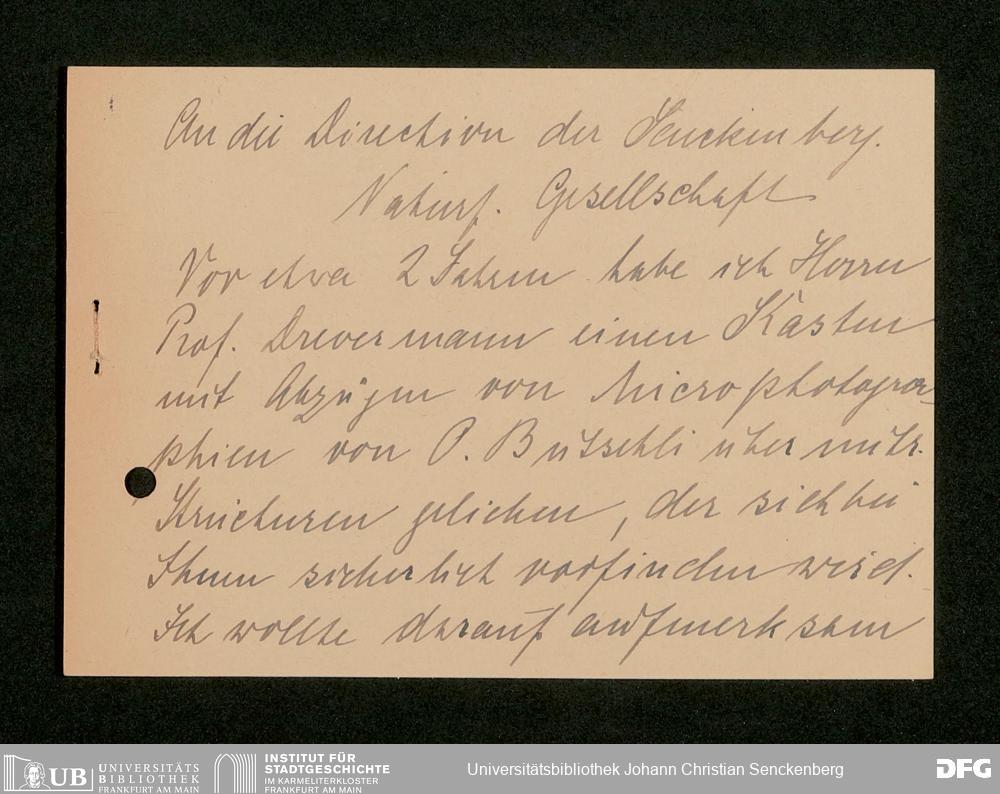 An die Direction der Senckenberg.
Naturf. Gesellschaft
Vor etwa 2 Jahren habe ich Herrn
Prof. Drevermann einen Kasten
mit Abzügen von Microphotogra-
phien von O. Bütschli über mikr.
Structuren geliehen, der sich bei
Ihnen sicherlich vorfinden wird.
Ich wollte darauf aufmerksam
UB UNIVERSITÄTS
BIBLIOTHEK
FRANKFURT AM MAIN
INSTITUT FÜR
STADTGESCHICHTE
IM KARMELITERKLOSTER
FRANKFURT AM MAIN
Universitätsbibliothek Johann Christian Senckenberg
DFG